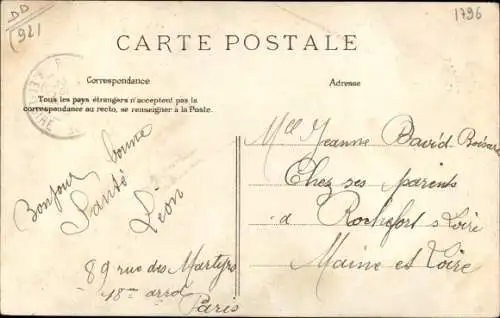 DD
(921
1796
CARTE POSTALE
Correspondance
Adresse
Tous les pays étrangers n'acceptent pas la
correspondance au recto, se renseigner à la Poste.
Bonjour bonne
Santé
Léon
89 rue des Martyrs
18me arrot
Paris
Mlle Jeanne David
Chez ses parents
à Rochefort s Loire
Maine et Loire